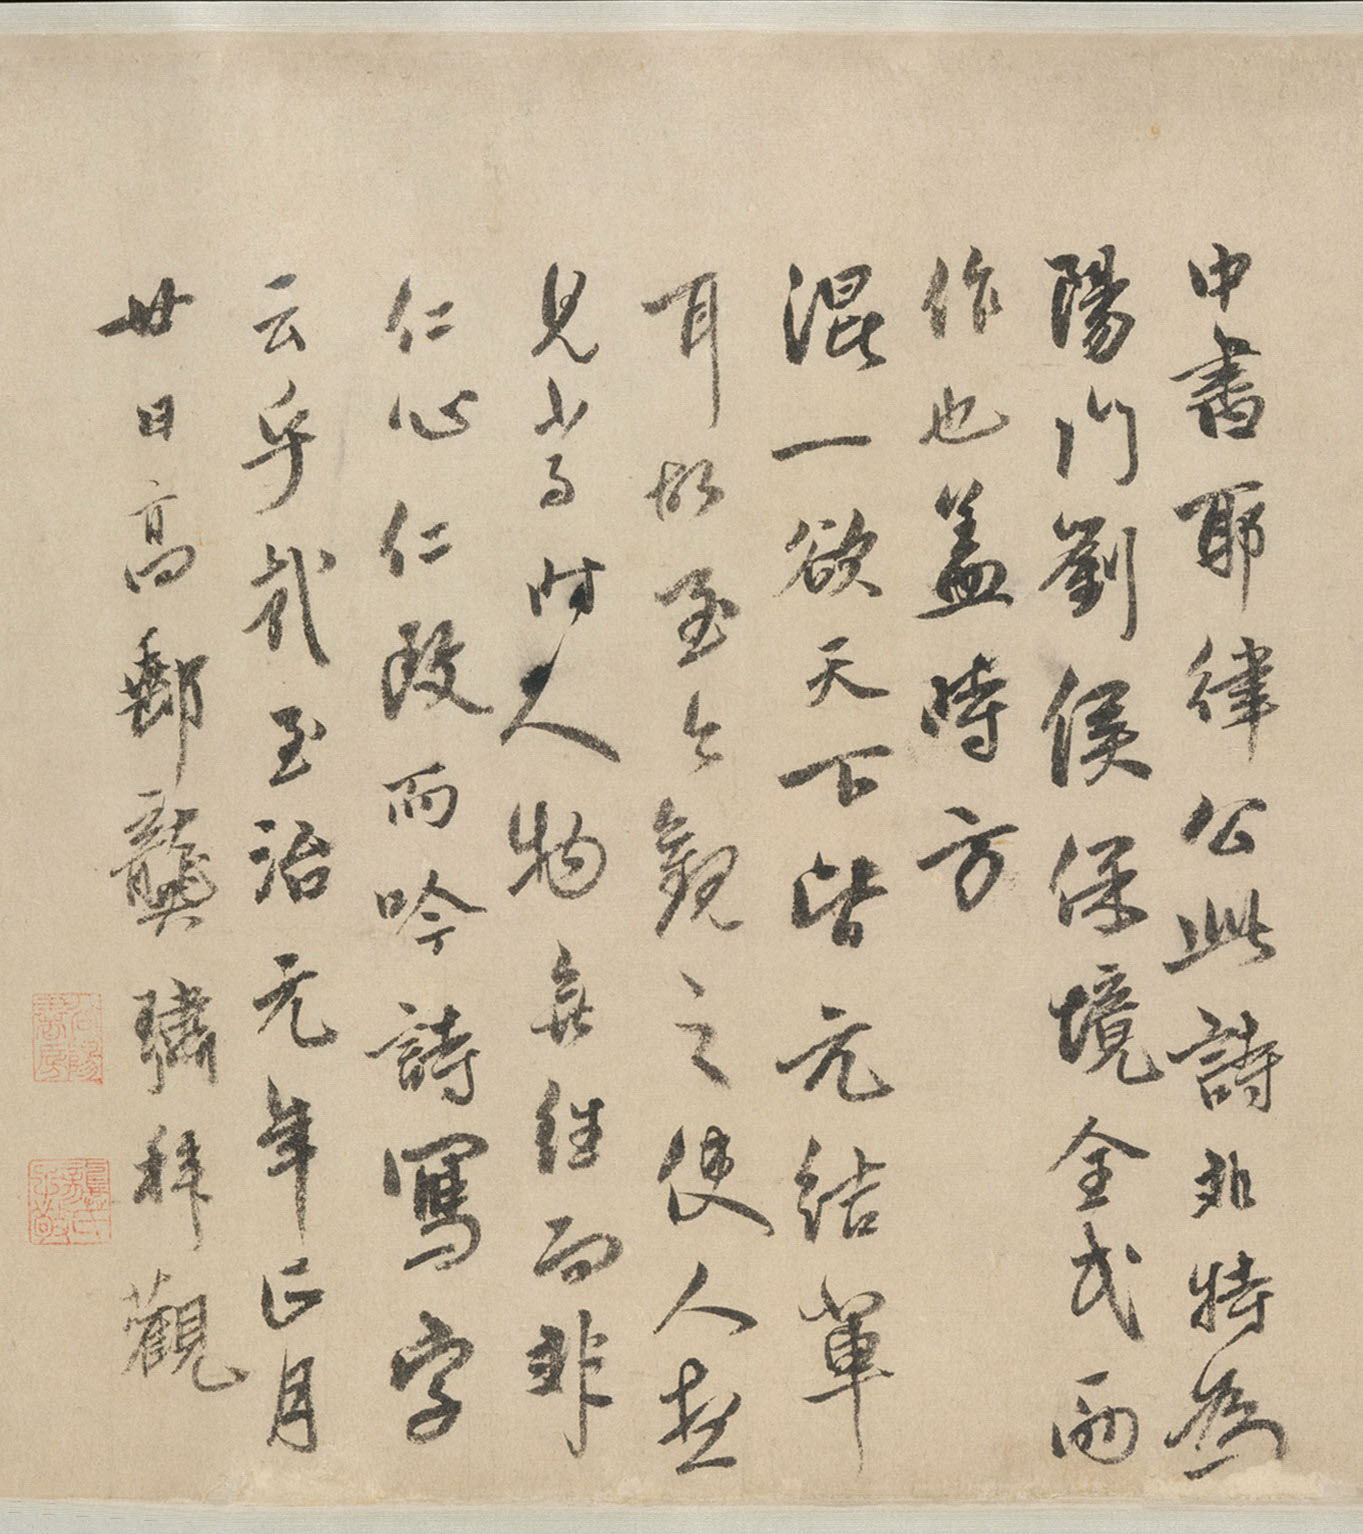 中書耶律公此詩非特為
陽門劉侯保境全民而
作也蓋時方
混一欲天下皆元結輩
耳故至今觀之使人想
見當時人物無往而非
仁心仁政而吟詩寫字
云乎哉至治元年正月
廿日高郵龔璛拜觀